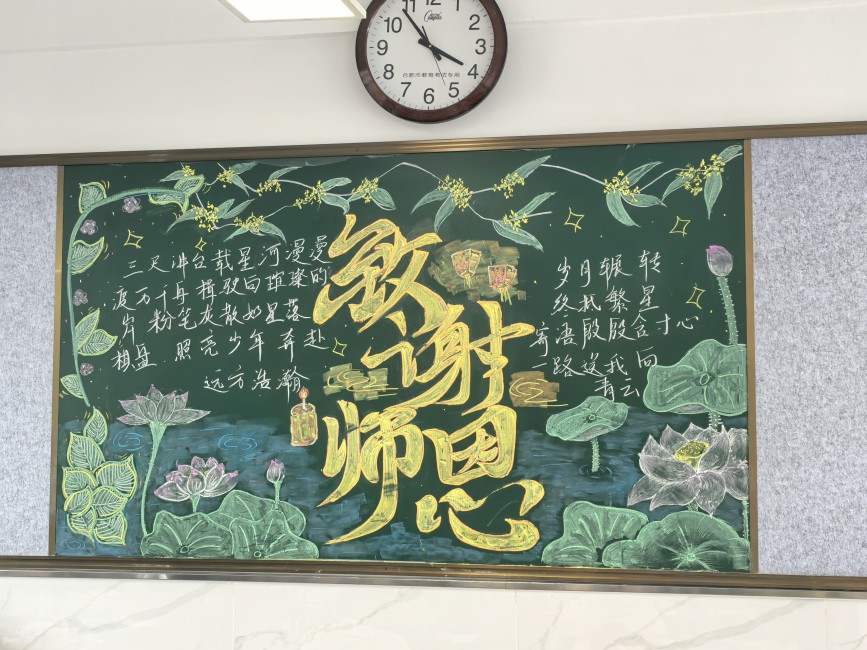 12
11 1
10 2
9 3
8 4
7 6 5
致谢师恩
三尺讲台载星河漫漫
渡万千舟楫驶向璀璨的
岸 粉笔灰散如星落
棋盘 照亮少年奔赴
远方浩瀚
岁月辗转
终 繁星
寄语殷殷含寸心
一路送我向
青云